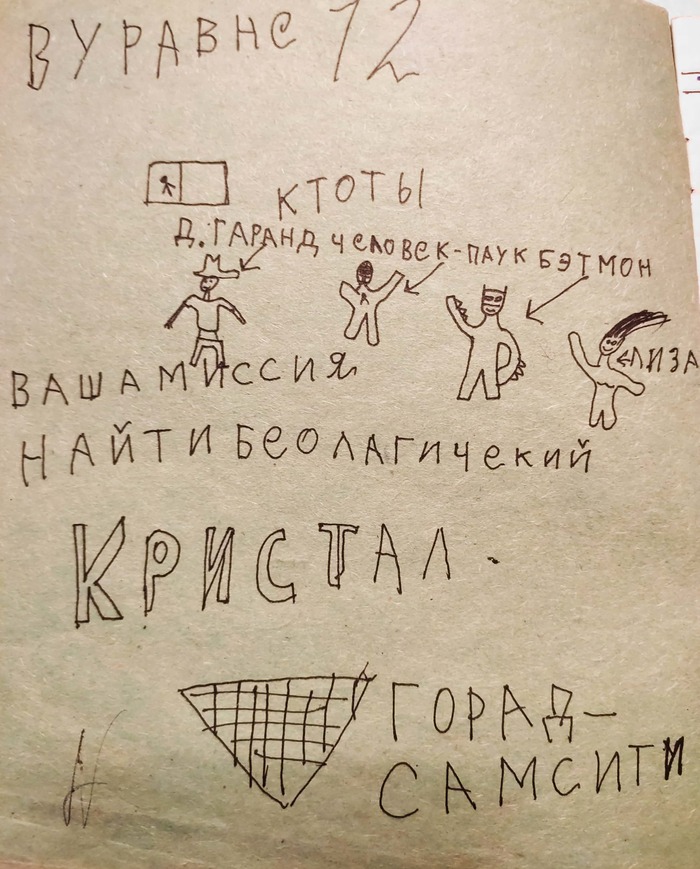 ВУРАВНЕ 12
КТОТЫ
Д. ГАРАНД ЧЕЛОВЕК-ПАУК БЭТМОН
ЛИЗА
ВАША МИССИЯ
НАЙТИ БЕОЛАГИЧЕКИЙ
КРИСТАЛ.
ГОРАД-
САМСИТИ